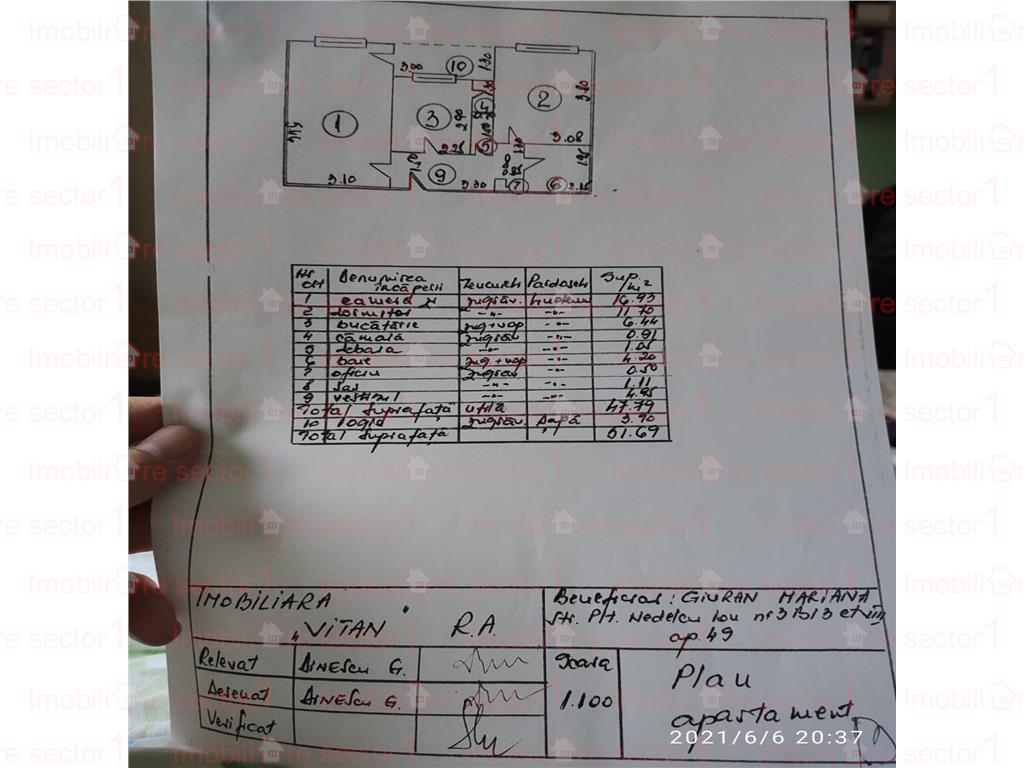 3.00 10 1.30
1 3 2
5.45 2.90 3.80
2.25 3.08
9 7 6
3.10 3.30 2.15
Nr crt Denumirea încăperii Tencuieli Pardoseli Sup. m²
1 camera zi zugrăv. 16.93
2 dormitor -"- -"- 11.70
3 bucătărie zug+vop -"- 6.44
4 cămară zugrăv -"- 0.91
5 debara -"- -"- 1.01
6 baie zug+vop -"- 4.20
7 oficiu zugrăv -"- 0.50
8 sas -"- -"- 1.11
9 vestibul -"- -"- 4.95
Total suprafață utilă 47.79
10 logie zugrăv. Șapă 3.90
Total suprafață " 51.69
IMOBILIARA
"VITAN R.A.
Beneficiar: GIURAN MARIANA
Str. Pt. Nedelcu Ion nr 3 bl 3 et
ap. 49
Relevat DINESCU G.
Desenat DINESCU G.
Verificat
Scara
1.100
Plan
apartament
2021/6/6 20:37
Imobiliare sector 1